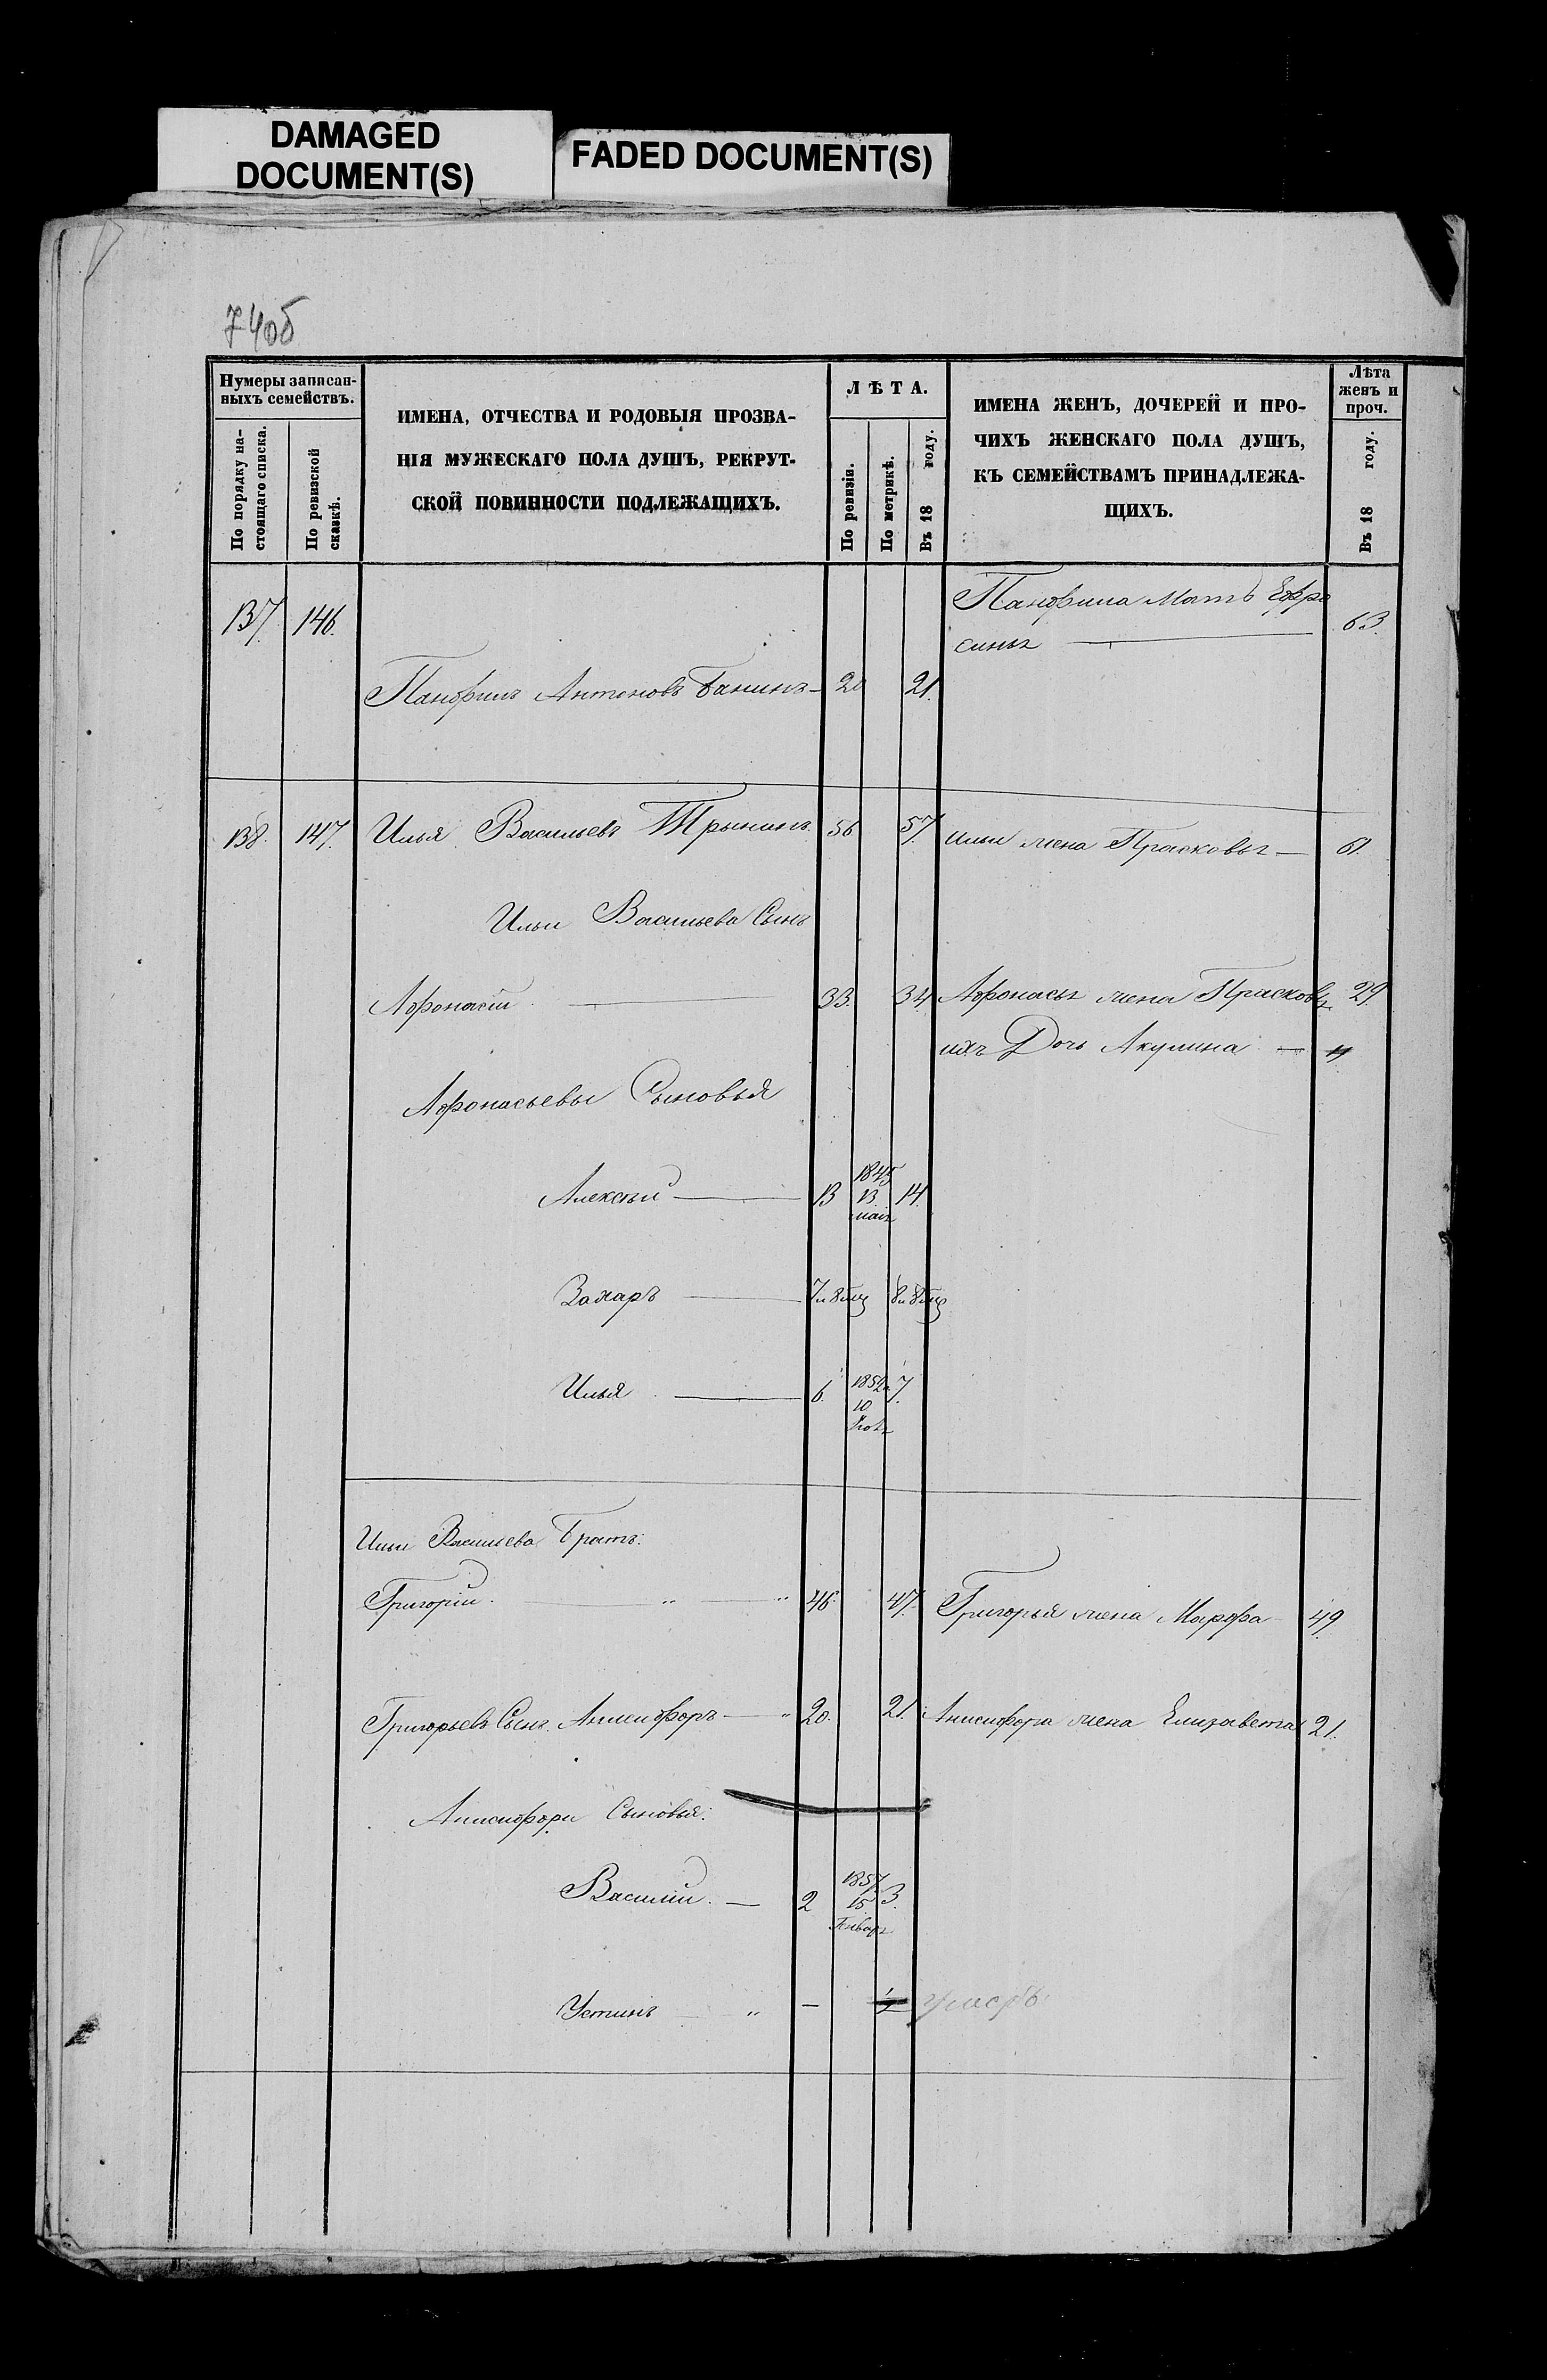 DAMAGED
DOCUMENT(S)
FADED DOCUMENT(S)
74об
Нумеры записан-
ныхъ семействъ.
По порядку на-
стоящаго списка.
По ревизской
сказкѣ.
ИМЕНА, ОТЧЕСТВА И РОДОВЫЯ ПРОЗВА-
НІЯ МУЖЕСКАГО ПОЛА ДУШЪ, РЕКРУТ-
СКОЙ ПОВИННОСТИ ПОДЛЕЖАЩИХЪ.
ЛѢТА.
По ревизіи.
По метрикѣ.
Въ 18 году.
ИМЕНА ЖЕНЪ, ДОЧЕРЕЙ И ПРО-
ЧИХЪ ЖЕНСКАГО ПОЛА ДУШЪ,
КЪ СЕМЕЙСТВАМЪ ПРИНАДЛЕЖА-
ЩИХЪ.
Лѣта
женъ и
проч.
Въ 18 году.
137. 146. Панфила Мать Ефро
синья — 63.
Панфилъ Антоновъ Банинъ — 20 21.
138. 147. Илья Васильевъ Трынинъ. 56 57. Ильи жена Прасковья — 61.
Ильи Васильева Сынъ
Афонасій — 33. 34 Афонасья жена Прасковья 29.
ихъ Дочь Акулина —
Афонасьевы Сыновья
Алексѣй — 13 1845 13 маія 14.
Захаръ — 7 и 8 мц 8 и 8 мц
Илья — 6. 1852 10 Ноя 7.
Ильи Васильева Братъ:
Григорій. — 46. 47. Григорья жена Марфа 49.
Григорьевъ Сынъ Анисифоръ — 20. 21. Анисифора жена Елизавета 21.
Анисифори Сыновья:
Василій. — 2 1857 15 Январ 3.
Устинъ — умеръ